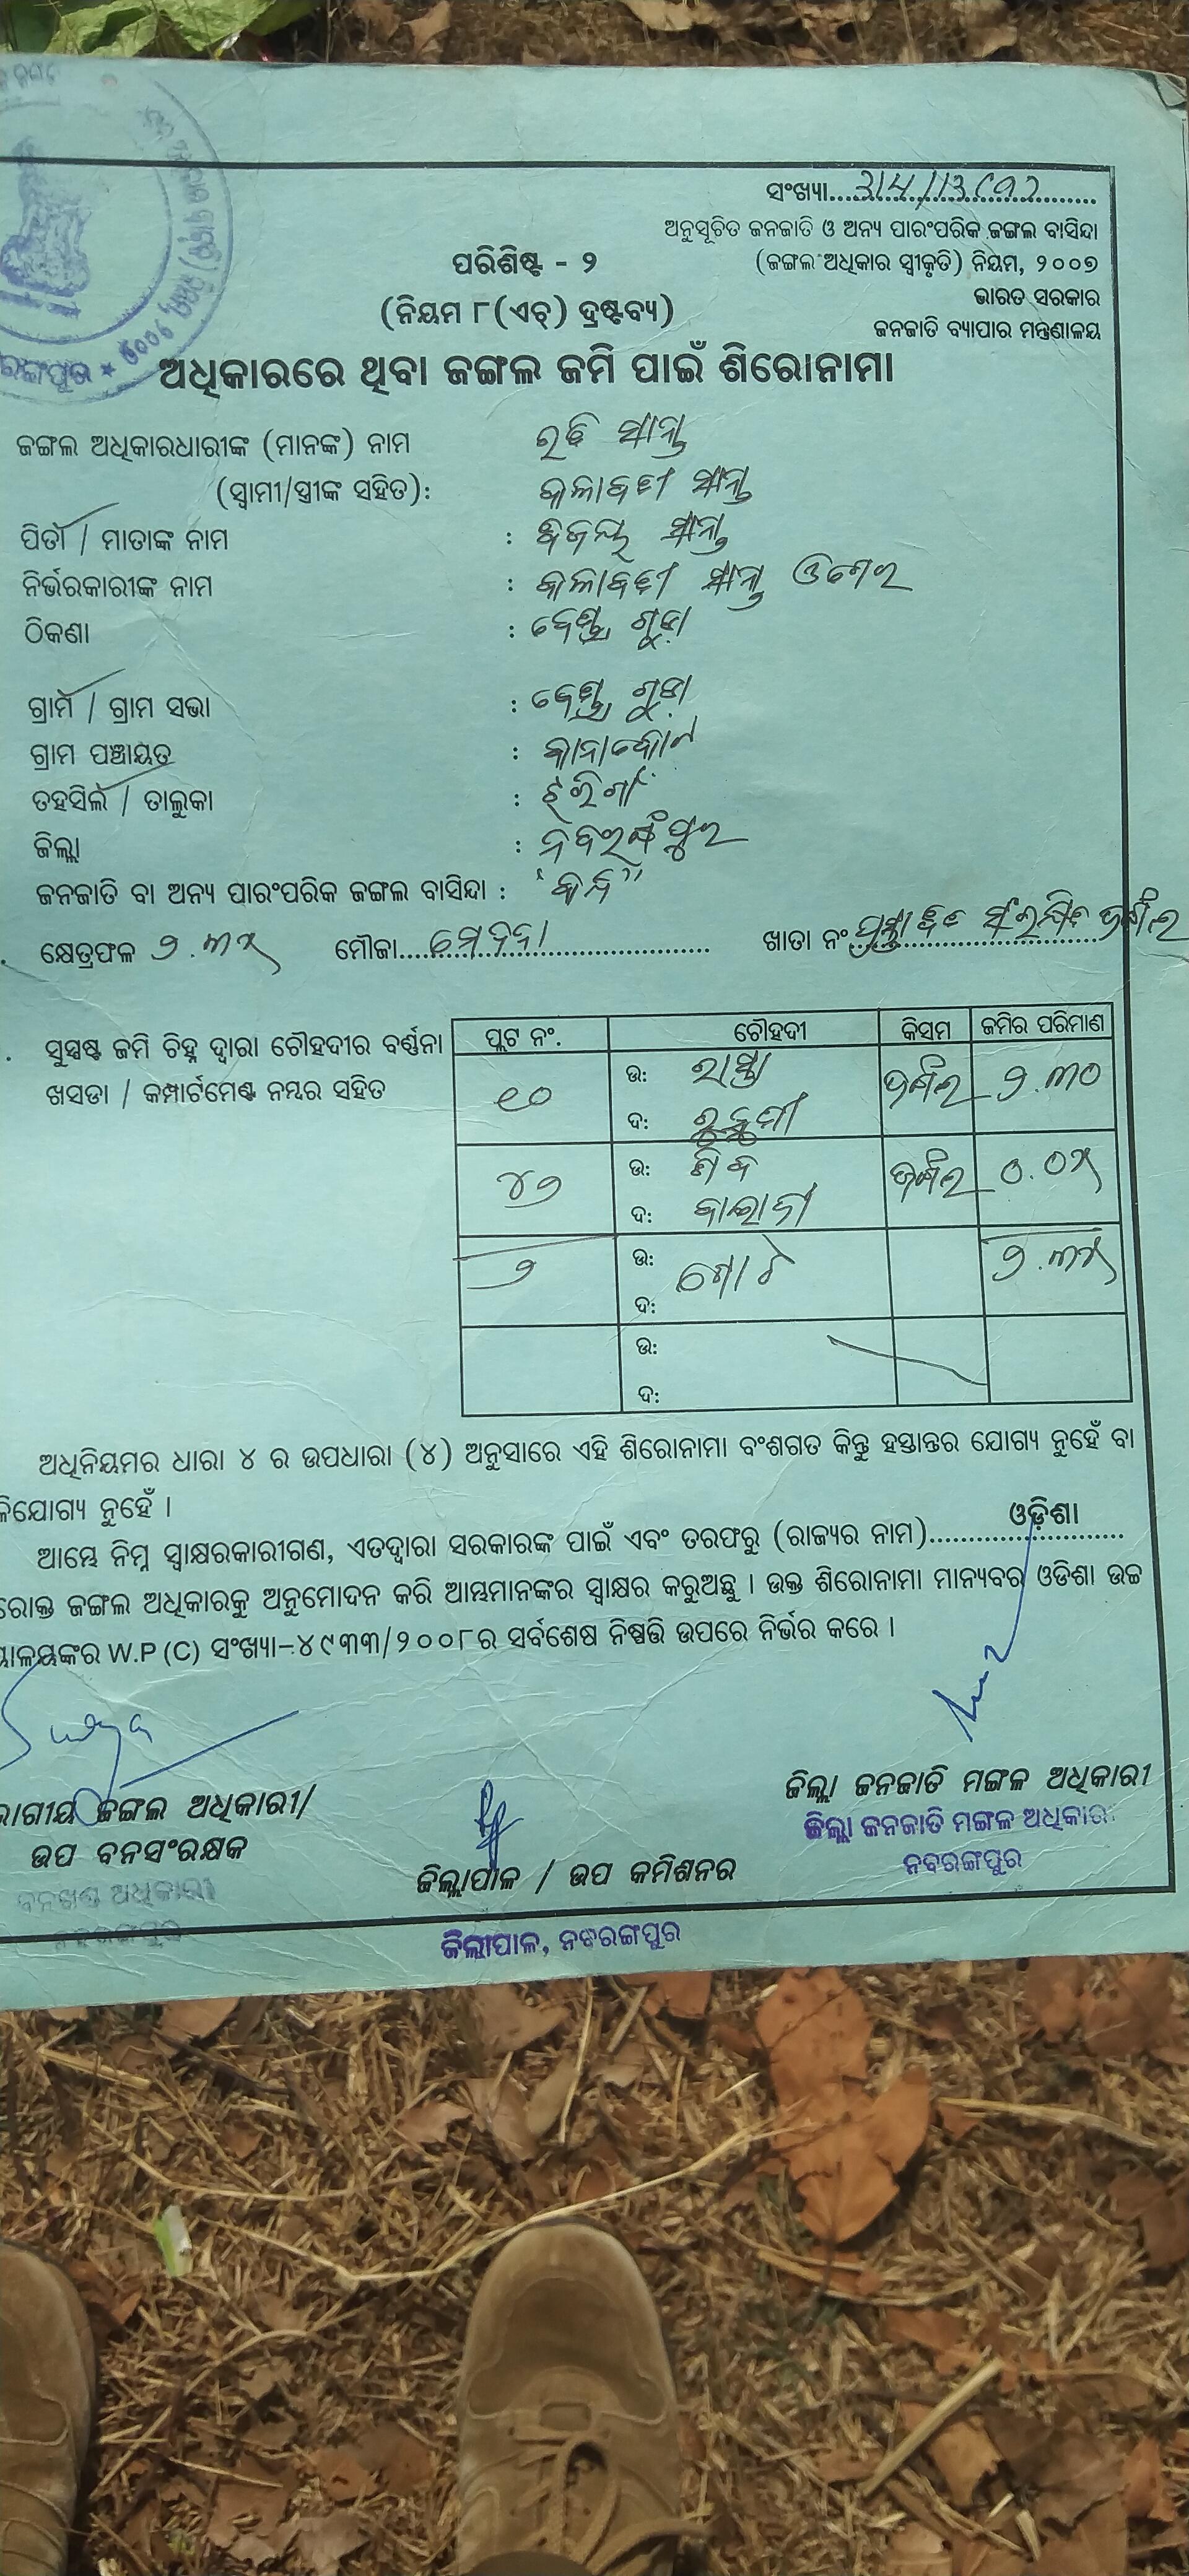 ସଂଖ୍ୟା
ଅନୁସୂଚିତ ଜନଜାତି ଓ ଅନ୍ୟ ପାରଂପରିକ ଜଙ୍ଗଲ ବାସିନ୍ଦା
ପରିଶିଷ୍ଟ - ୨
(ଜଙ୍ଗଲ ଅଧିକାର ସ୍ୱୀକୃତି) ନିୟମ, ୨୦୦୭
(ନିୟମ ୮(ଏଚ୍) ଦ୍ରଷ୍ଟବ୍ୟ)
ଭାରତ ସରକାର
ଜନଜାତି ବ୍ୟାପାର ମନ୍ତ୍ରଣାଳୟ
ଅଧିକାରରେ ଥିବା ଜଙ୍ଗଲ ଜମି ପାଇଁ ଶିରୋନାମା
ଜଙ୍ଗଲ ଅଧିକାରଧାରୀଙ୍କ (ମାନଙ୍କ) ନାମ ରବି ସାନ୍ତ
(ସ୍ୱାମୀ/ସ୍ତ୍ରୀଙ୍କ ସହିତ): କଳାବତୀ ସାନ୍ତ
ପିତା / ମାତାଙ୍କ ନାମ : ସାନ୍ତ
ନିର୍ଭରକାରୀଙ୍କ ନାମ : କଳାବତୀ ସାନ୍ତ
ଠିକଣା : ଗୁଡ଼ା
ଗ୍ରାମ / ଗ୍ରାମ ସଭା : ଗୁଡ଼ା
ଗ୍ରାମ ପଞ୍ଚାୟତ :
ତହସିଲ / ତାଲୁକା : ଝରିଗାଁ
ଜିଲ୍ଲା : ନବରଙ୍ଗପୁର
ଜନଜାତି ବା ଅନ୍ୟ ପାରଂପରିକ ଜଙ୍ଗଲ ବାସିନ୍ଦା :
କ୍ଷେତ୍ରଫଳ ୨.୩୫ ମୌଜା ଖାତା ନଂ ପ୍ରସ୍ତାବିତ ସଂରକ୍ଷିତ ଜଙ୍ଗଲ
ସୁସ୍ପଷ୍ଟ ଜମି ଚିହ୍ନ ଦ୍ୱାରା ଚୌହଦୀର ବର୍ଣ୍ଣନା
ଖସଡା / କମ୍ପାର୍ଟମେଣ୍ଟ ନମ୍ବର ସହିତ
ପ୍ଲଟ ନଂ. ଚୌହଦୀ କିସମ ଜମିର ପରିମାଣ
୧୦ ଉ: ରାସ୍ତା ଜଙ୍ଗଲ ୨.୩୦
ଦ:
୪୨ ଉ: ଜଙ୍ଗଲ ୦.୦୫
ଦ:
୨ ଉ: ୨.୩୫
ଦ:
ଉ:
ଦ:
ଅଧିନିୟମର ଧାରା ୪ ର ଉପଧାରା (୪) ଅନୁସାରେ ଏହି ଶିରୋନାମା ବଂଶଗତ କିନ୍ତୁ ହସ୍ତାନ୍ତର ଯୋଗ୍ୟ ନୁହେଁ ବା
ନୁହେଁ ।
ଆମ୍ଭେ ନିମ୍ନ ସ୍ୱାକ୍ଷରକାରୀଗଣ, ଏତଦ୍ୱାରା ସରକାରଙ୍କ ପାଇଁ ଏବଂ ତରଫରୁ (ରାଜ୍ୟର ନାମ) ଓଡ଼ିଶା
ଜଙ୍ଗଲ ଅଧିକାରକୁ ଅନୁମୋଦନ କରି ଆମ୍ଭମାନଙ୍କର ସ୍ୱାକ୍ଷର କରୁଅଛୁ । ଉକ୍ତ ଶିରୋନାମା ମାନ୍ୟବର ଓଡିଶା ଉଚ୍ଚ
W.P (C) ସଂଖ୍ୟା-୪୯୩୩/୨୦୦୮ର ସର୍ବଶେଷ ନିଷ୍ପତ୍ତି ଉପରେ ନିର୍ଭର କରେ ।
ଜଙ୍ଗଲ ଅଧିକାରୀ/
ଉପ ବନସଂରକ୍ଷକ
ବନଖଣ୍ଡ ଅଧିକାରୀ
ଜିଲ୍ଲାପାଳ / ଉପ କମିଶନର
ଜିଲ୍ଲାପାଳ, ନବରଙ୍ଗପୁର
ଜିଲ୍ଲା ଜନଜାତି ମଙ୍ଗଳ ଅଧିକାରୀ
ଜିଲ୍ଲା ଜନଜାତି ମଙ୍ଗଳ ଅଧିକାରୀ
ନବରଙ୍ଗପୁର